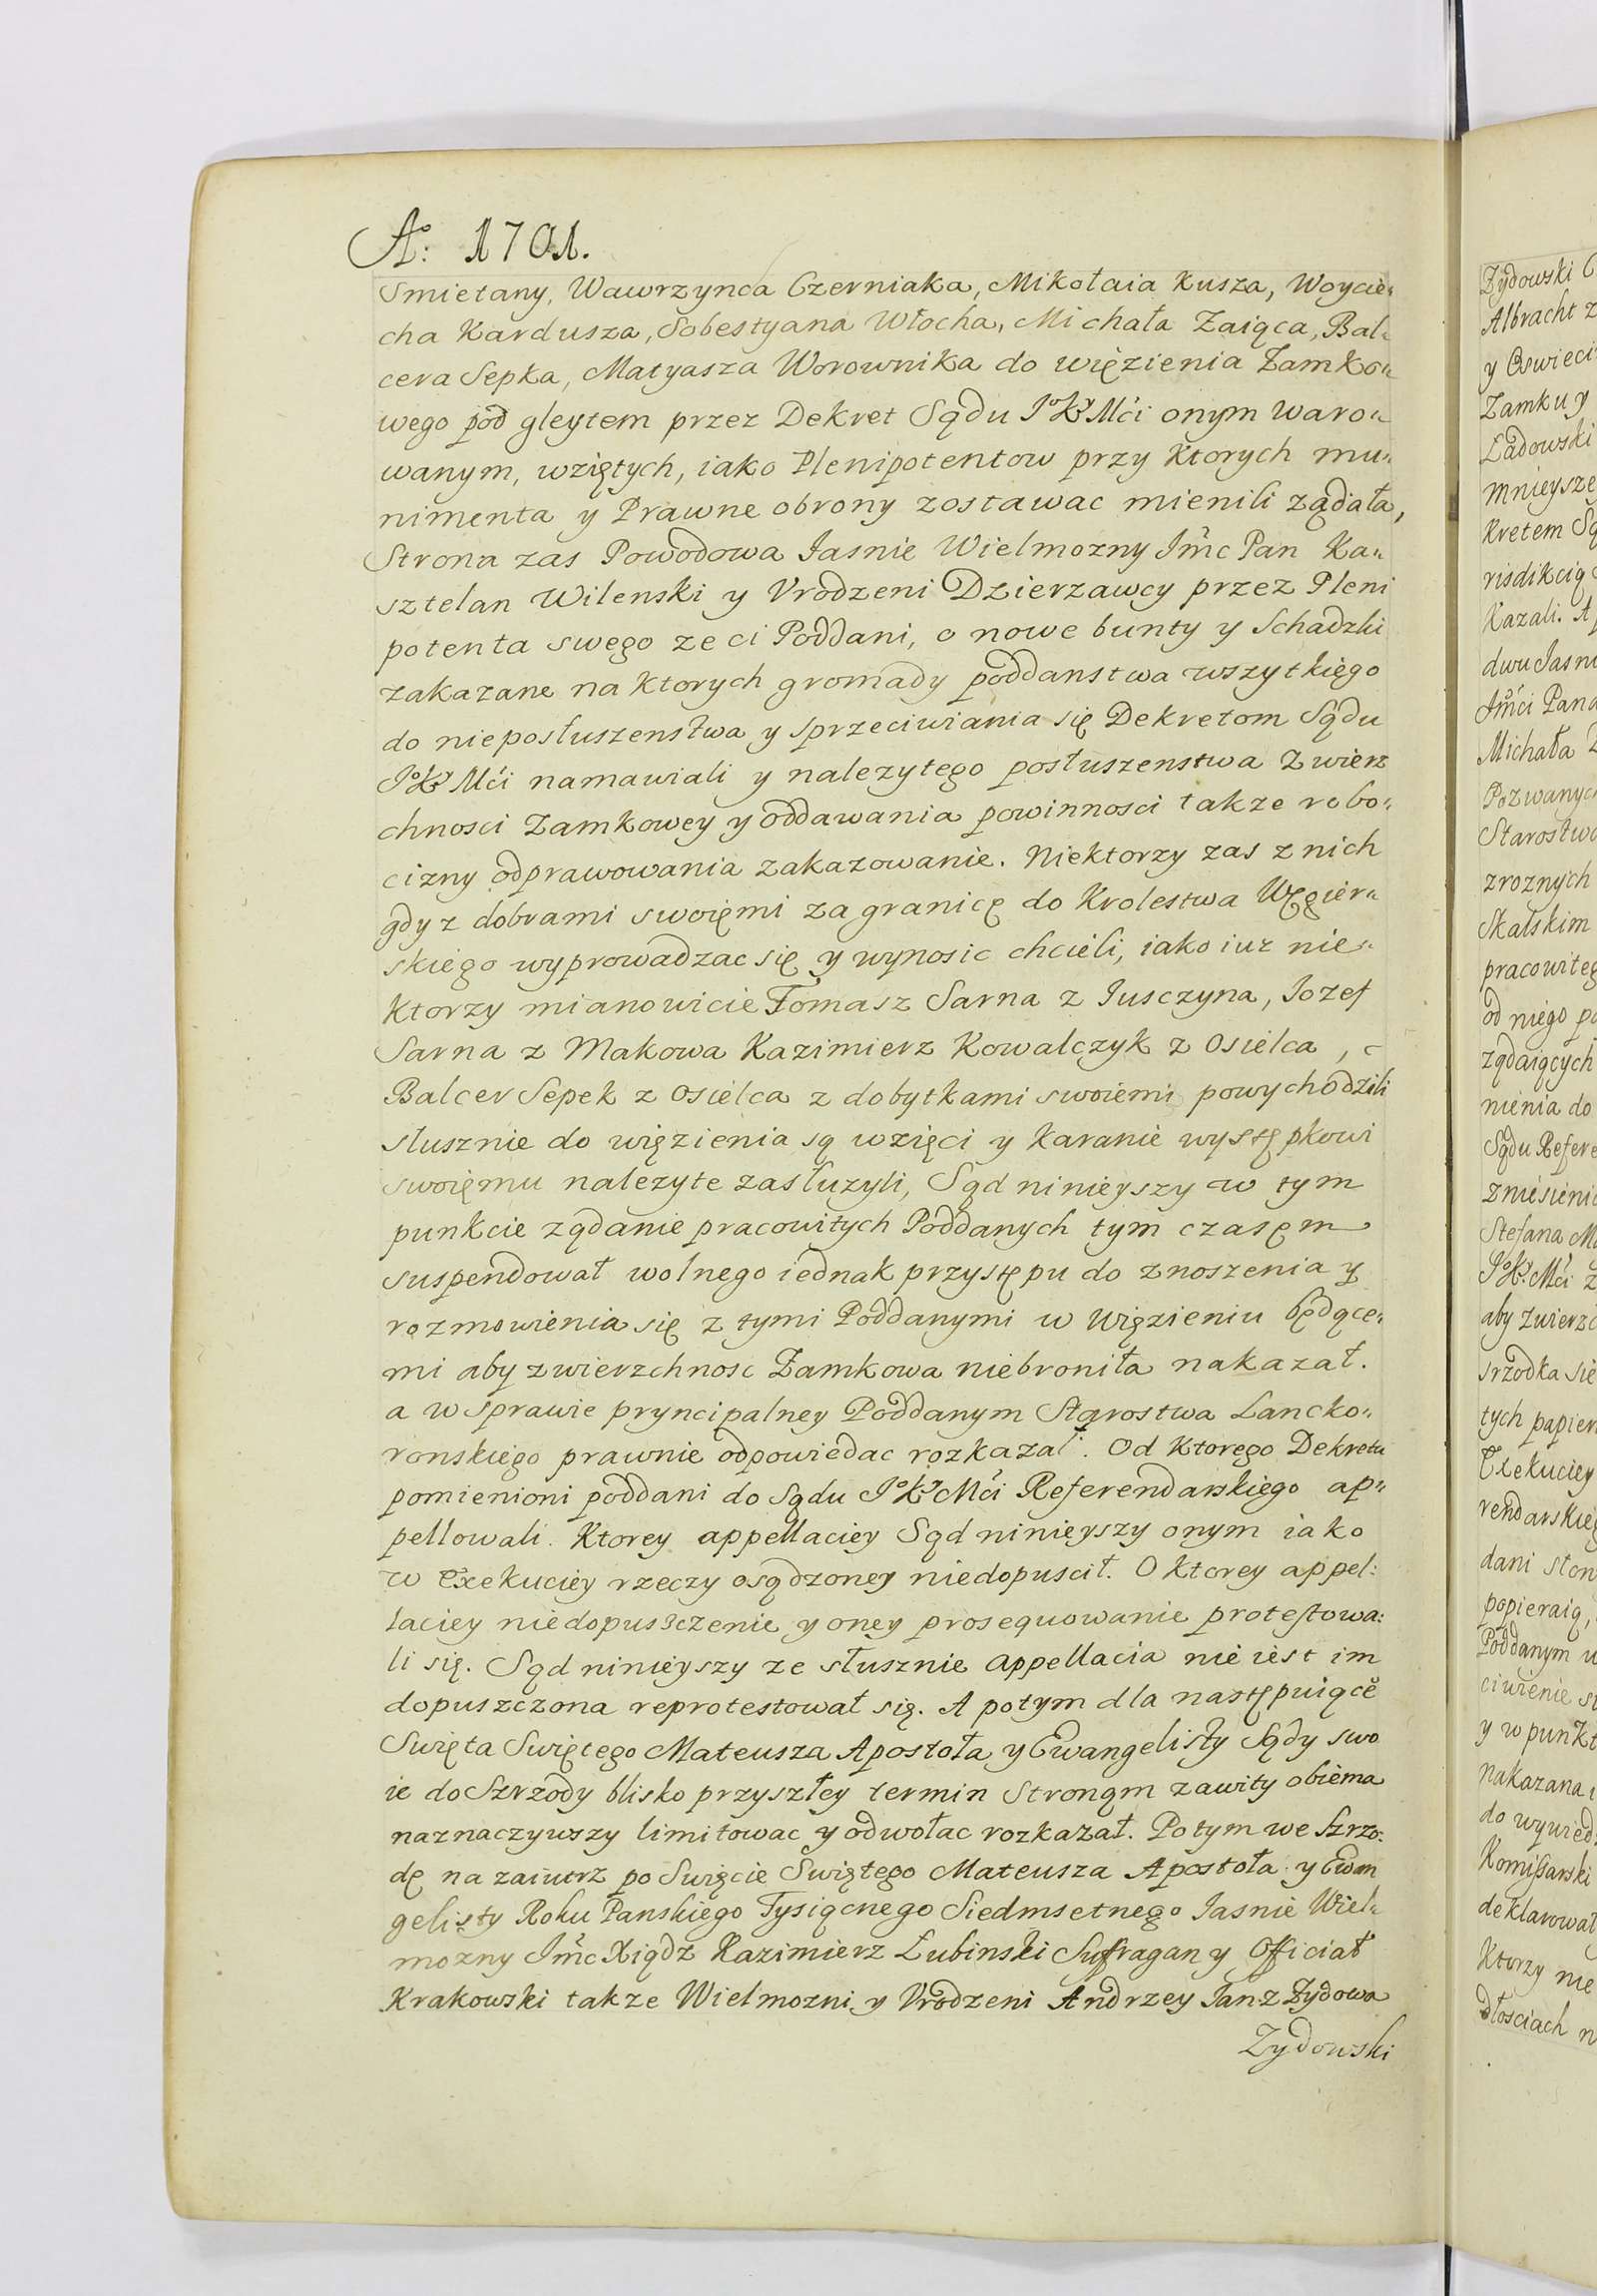 Aº: 1701.
Smietany, Wawrzynca Czerniaka, Mikołaia Kusza, Woycie„
cha Kardusza, Sobestyana Włocha, Michała Zaiąca, Bal„
cera Sepka, Matyasza Worownika do więzienia Zamko„
wego pod gleytem przez Dekret Sądu JºKʸMći onym waro„
wanym, wziętych, iako Plenipotentow przy ktorych mu„
nimenta y Prawne obrony zostawac mienili ządała,
Strona zas Powodowa Iasnie Wielmozny Jm̃c Pan Ka„
sztelan Wilenski y Vrodzeni Dzierzawcy przez Pleni
potenta swego ze ci Poddani, o nowe bunty y Schadzki
zakazane na ktorych gromady poddanstwa wszytkiego
do nieposłuszenstwa y sprzeciwiania się Dekretom Sądu
JºKʸMći namawiali y nalezytego posłuszenstwa Zwierz
chnosci Zamkowey y oddawania powinnosci takze robo„
cizny odprawowania zakazowanie. Niektorzy zas z nich
gdy z dobrami swoięmi za granicę do Krolestwa Węgier„
skiego wyprowadzac się y wynosic chcieli, iako iuz nie„
ktorzy mianowicie Tomasz Sarna z Iusczyna, Iozef
Sarna z Makowa Kazimierz Kowalczyk z Osielca,
Balcer Sepek z Osielca z dobytkami swoiemi powychodzili
słusznie do więzienia są wzięci y karanie występkowi
swoięmu nalezyte zasłuzyli, Sąd ninieyszy w tym
punkcie ządanie pracowitych Poddanych tym czasęm
suspendował wolnego iednak przystępu do znoszenia y
rozmowienia się z tymi Poddanymi w więzieniu będące„
mi aby zwierzchnosc Zamkowa niebroniła nakazał.
a w sprawie pryncipalney Poddanym Starostwa Lancko„
ronskiego prawnie odpowiedac rozkazał. Od ktorego Dekretu
pomienioni poddani do Sądu JºKʸMći Referendarskiego ap„
pellowali. Ktorey appellaciey Sąd ninieyszy onym iako
w Exekuciey rzeczy osądzoney niedopuscił. O ktorey appel:
laciey niedopuszczenie y oney prosequowanie protestowa:
li się. Sąd ninieyszy ze słusznie appellacia nie iest im
dopuszczona reprotestował się. A potym dla następuiące
Swięta Swiętego Mateusza Apostoła y Ewangelisty Sądy swo
ie do Szrzody blisko przyszłey termin Stronom zawity obiema
naznaczywszy limitowac y odwołac rozkazał. Potym we Szrzo:
dę na zaiutrz po Swięcie Swiętego Mateusza Apostoła y Ewan
gelisty Roku Panskiego Tysiącnego Siedmsetnego Iasnie Wiel„
mozny Jm̃c Xiądz Kazimierz Łubinski Suffragan y Officiał
Krakowski takze Wielmozni y Vrodzeni Andrzey Ian z Zydowa
Zydowski
Zydowski
Albracht z
y Oswieci
Zamku y
Ladowski
mnieysze
kretem Są
risdikcią
Kazali. A
dwu Iasni
Jm̃ći Pana
Michała
Pozwanych
Starostwa
z roznych
Skalskim
pracowiteg
od niego po
ządaiących
nienia do
Sądu Refere
zniesienie
Stefana Ma
JºKʸ.Mći z
aby zwierzc
srzodka się
tych papier
Exekuciey
rendarskieg
dani ston
popieraią,
Poddanym w
ciwienie si
y w punkt
nakazana
do wywied
Komissarski
deklarował
Ktorzy nie
dłosciach n